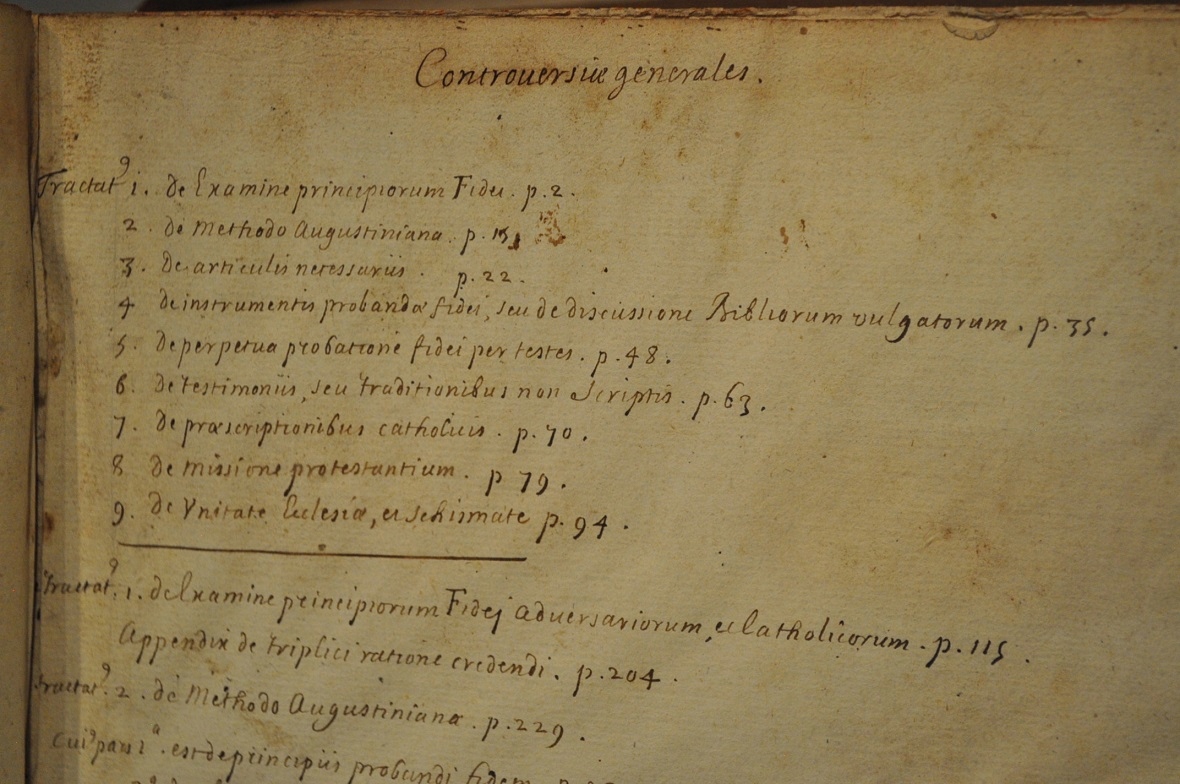 Controversiæ generales.
Tractatꝰ 1. de Examine principiorum Fidei. p. 2.
2. de Methodo Augustiniana. p.
3. de articulis necessariis. p. 22.
4 de instrumentis probandæ fidei, seu de discussione Bibliorum vulgatorum. p. 35.
5. de perpetua probatione fidei per testes. p. 48.
6. de testimoniis, seu traditionibus non Scriptis. p. 63.
7. de præscriptionibus catholicis. p. 70.
8 de missione protestantium. p 79.
9. de Vnitate Eclesiæ, et schismate p. 94.
Tractatꝰ. 1. de Examine principiorum Fidej adversariorum, et Catholicorum. p. 115.
Appendix de triplici ratione credendi. p. 204.
tractatꝰ. 2. de Methodo Augustiniana. p. 229.
cuiꝰ pars 1ª. est de principiis probandi fidem